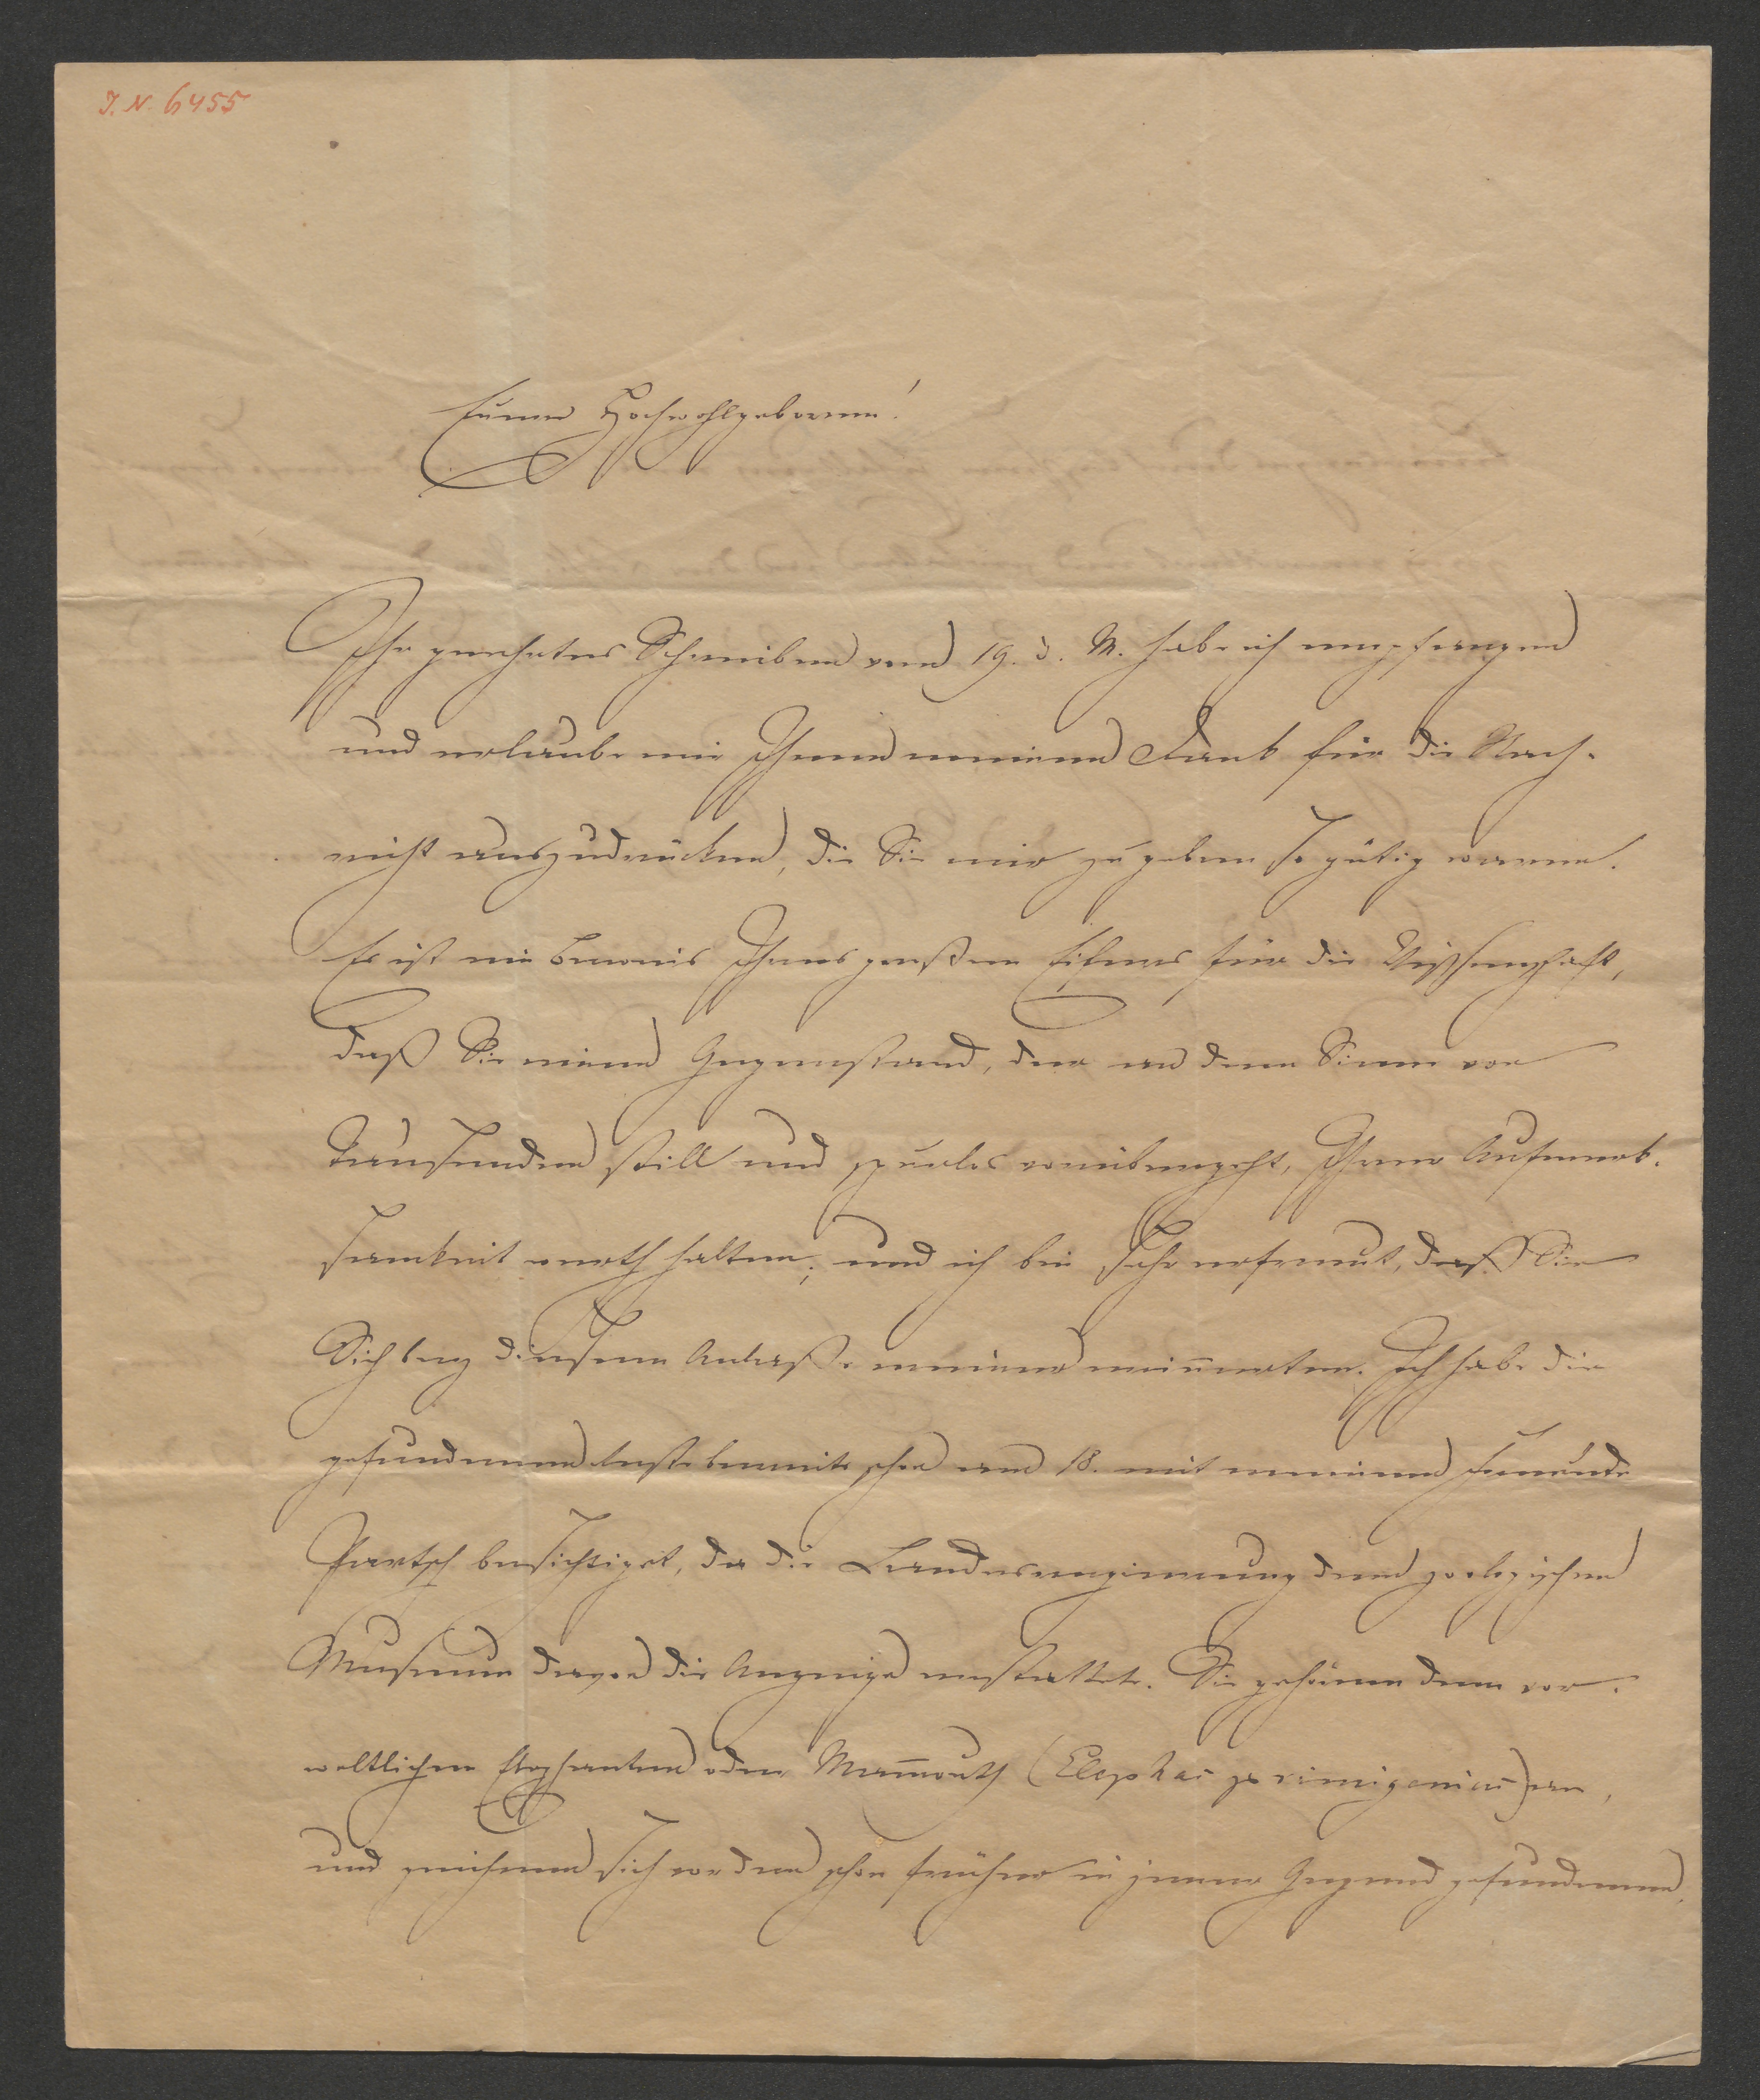 J. N. 6455
Euer Hochwohlgeboren!
Ihr geehrtes Schreiben vom 19. d. M. habe ich empfangen
und erlaube mir Ihnen meinen Dank für die Nach-
richt auszudrücken, die Sie mir zu geben so gütig waren.
Es ist ein Beweis Ihres großen Eifers für die Wissenschaft,
daß Sie einen Gegenstand, der an dem Sinne von
Tausenden still und spurlos vorübergeht, Ihrer Aufmerk-
samkeit werth halten; und ich bin sehr erfreut, daß Sie
Sich bey diesem Anlaße meiner erinnerten. Ich habe die
gefundenen Reste bereits schon am 18. mit meinem Freunde
Partsch besichtiget, da die Landesregierung dem zoologischen
Museum davon die Anzeige erstattete. Sie gehören dem vor-
weltlichen Elephanten oder Mam̅outh (Elephas primigenius) an,
und reihen sich an den schon früher in jener Gegend gefundenen,